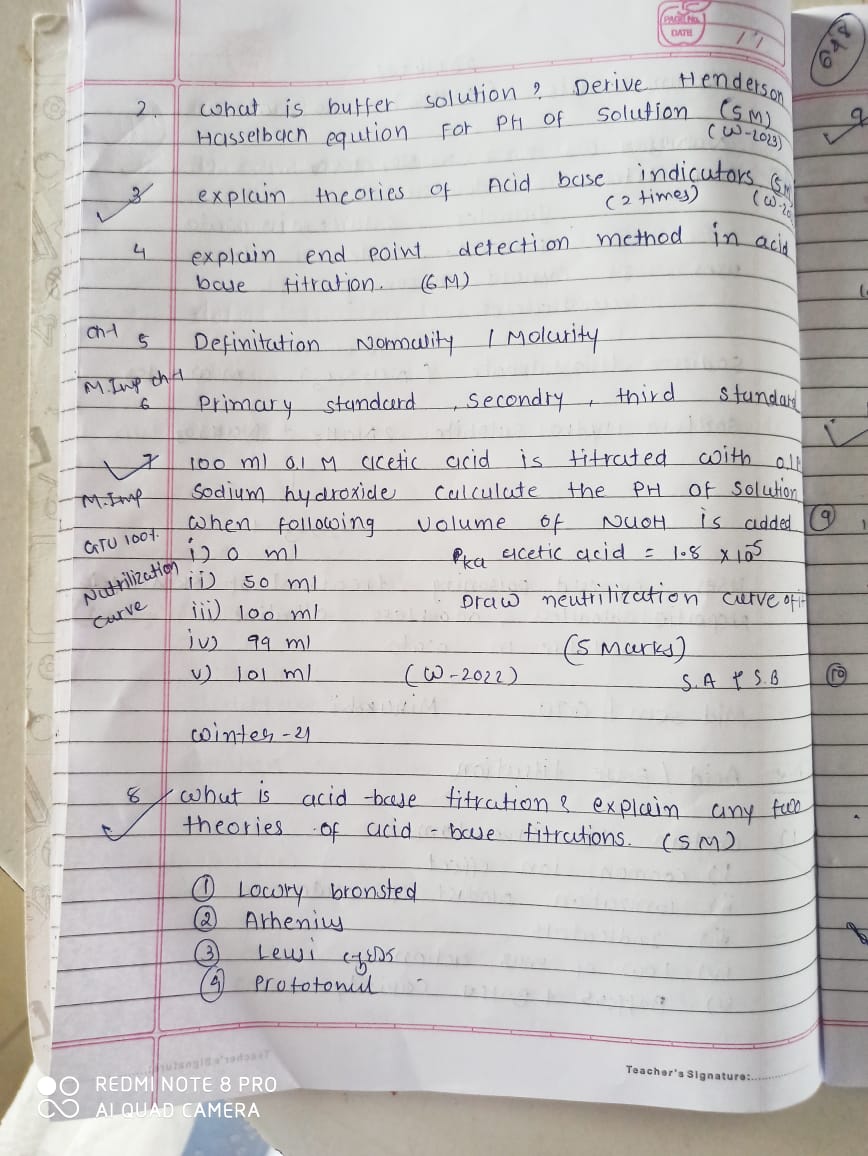 PAGE No.
DATE
2. What is buffer solution? Derive Henderson
Hasselbach eqution For PH OF Solution (5M)
(W-2023)
3 explain theories of Acid base indicators (5M
(2 times) (W-20
4 explain end point detection method in acid
base titration. (6M)
ch-1 5 Definitation Normality / Molarity
M.Imp ch-1
6 Primary standard, secondry, third standard
7 100 ml 0.1 M acetic acid is titrated with
M.Imp sodium hydroxide calculate the PH OF solution
GTU 100%. when following volume of NaOH is added
i) 0 ml Pka acetic acid = 1.8 x 10-5
Nutrilization curve
ii) 50 ml
iii) 100 ml Draw neutrilization curve of it
iv) 99 ml (5 Marks)
v) 101 ml (W-2022) S.A & S.B
Winter -21
8 What is acid-base titration? explain any two
theories of acid-base titrations. (5M)
① Lowry bronsted
② Arhenius
③ Lewi
④
Teacher's Signature:........
REDMI NOTE 8 PRO
AI QUAD CAMERA
648
9
10